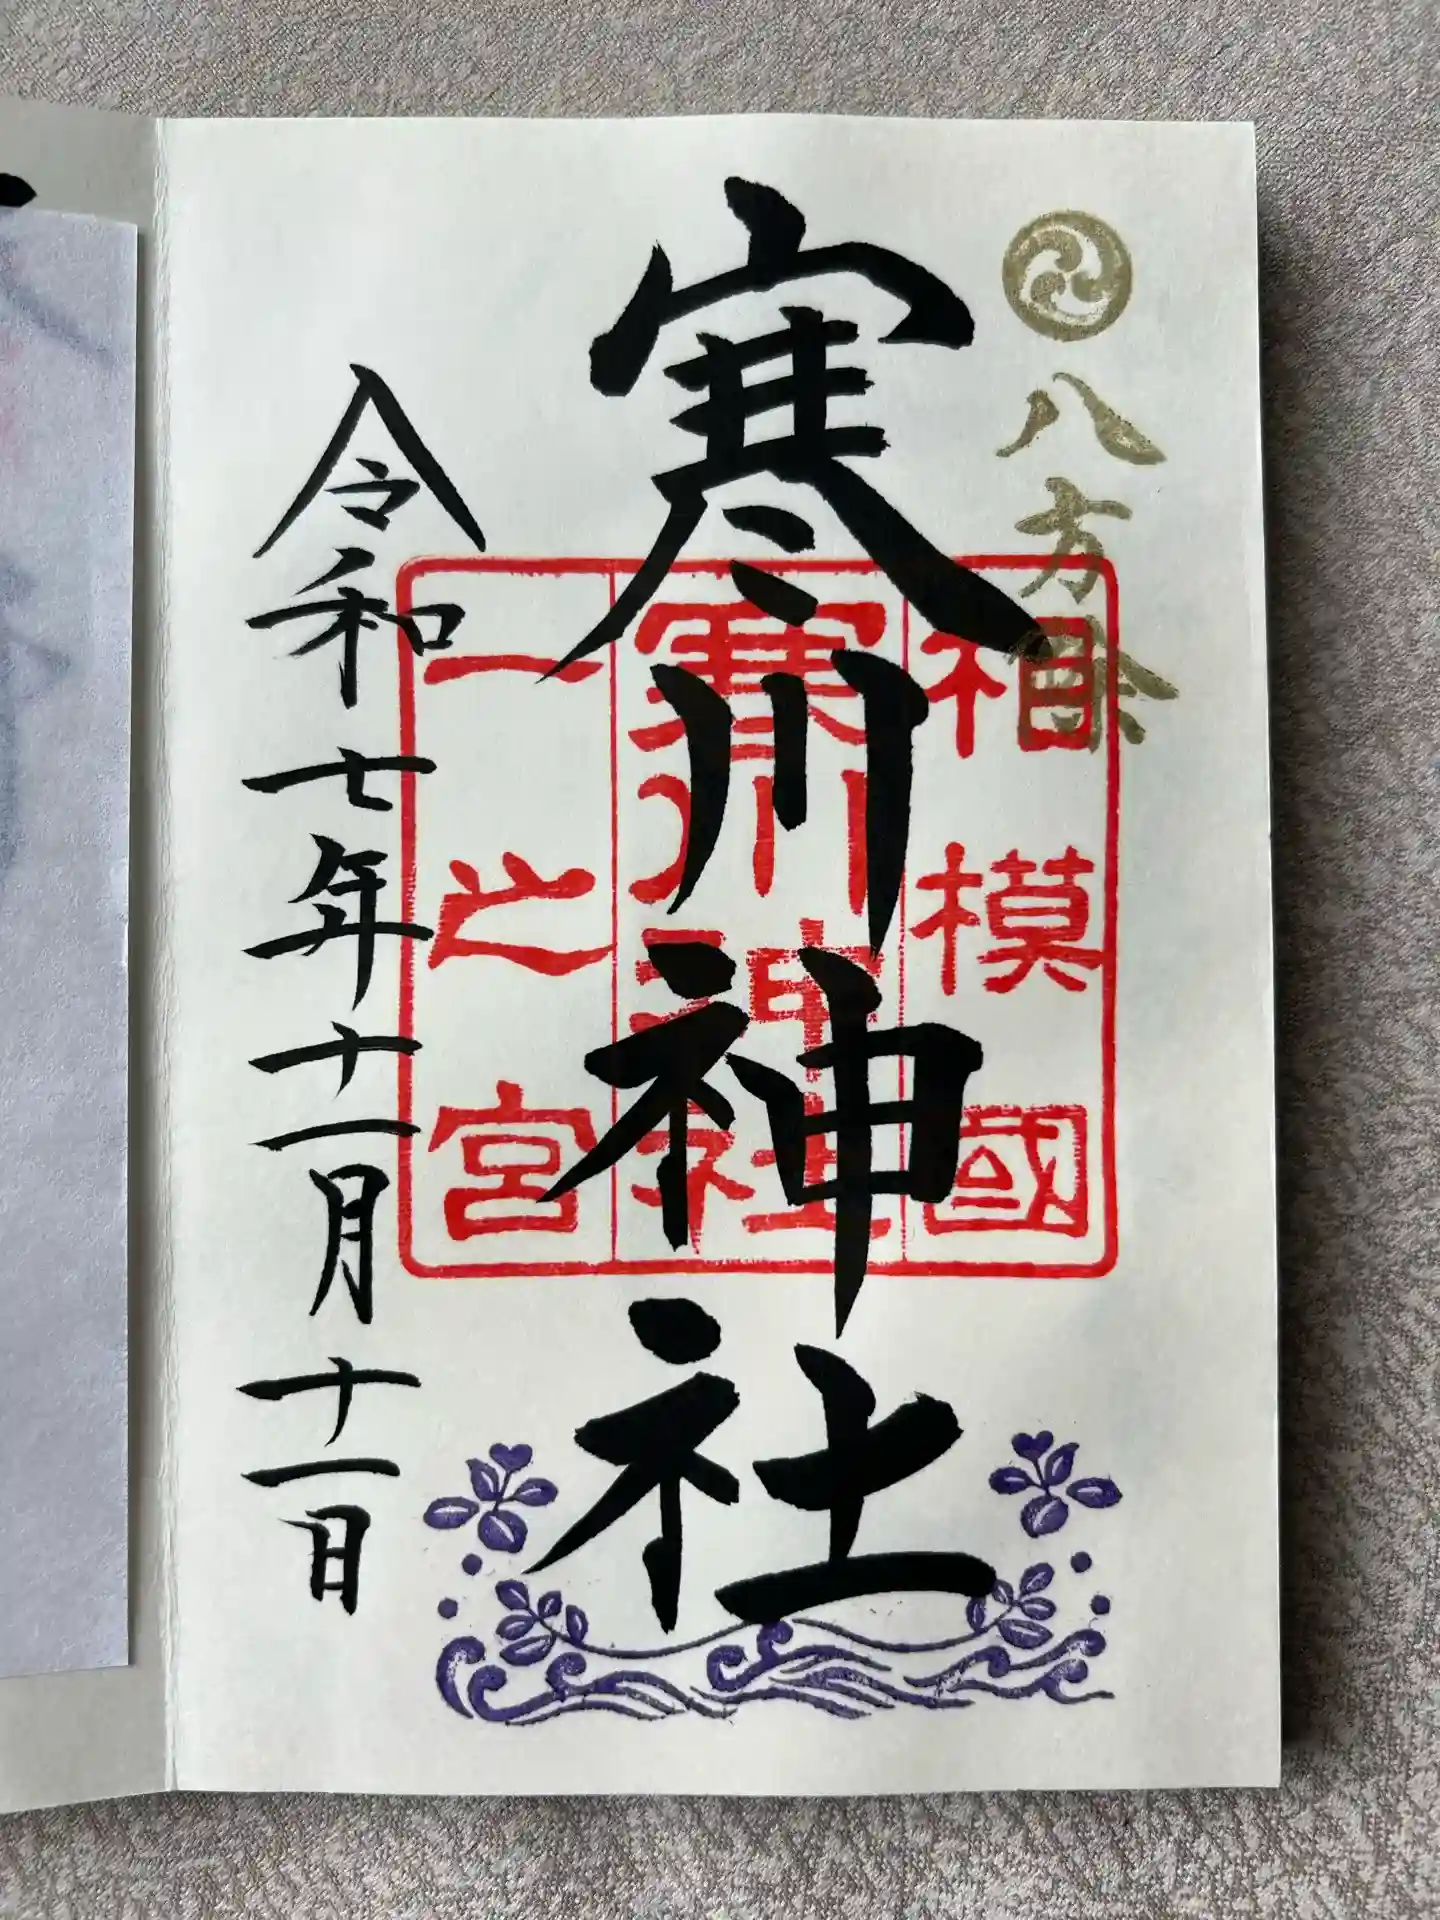 八方除
寒川神社
相模國
寒川神社
一之宮
令和七年十一月十一日